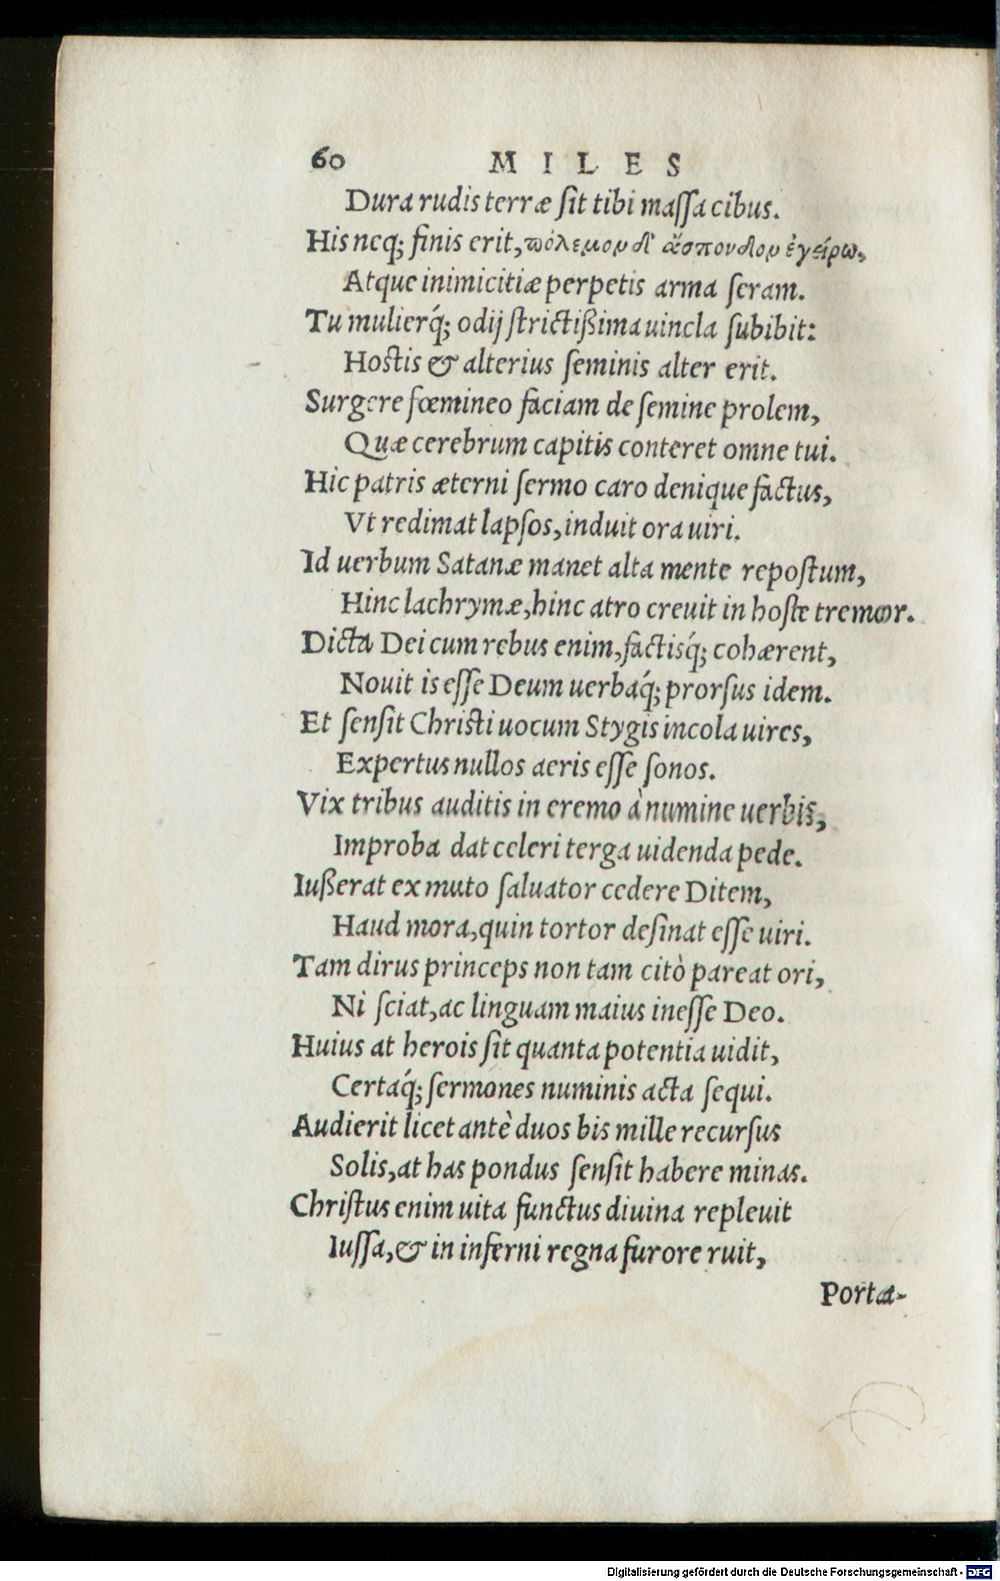 60 MILES
Dura rudis terræ ſit tibi maſſa cibus.
His neq; finis erit, πόλεμον δ' ἄσπονδον ἐγείρω,
Atque inimicitiæ perpetis arma ſeram.
Tu mulierq́; odij ſtrictißima uincla ſubibit:
Hostis & alterius ſeminis alter erit.
Surgere fœmineo faciam de ſemine prolem,
Quæ cerebrum capitis conteret omne tui.
Hic patris æterni ſermo caro denique factus,
Vt redimat lapſos, induit ora uiri.
Id uerbum Satanæ manet alta mente repoſtum,
Hinc lachrymæ, hinc atro creuit in hoſte tremor.
Dicta Dei cum rebus enim, factisq́; cohærent,
Nouit is eſſe Deum uerbaq́; prorſus idem.
Et ſenſit Christi uocum Stygis incola uires,
Expertus nullos aeris eſſe ſonos.
Vix tribus auditis in eremo à numine uerbis,
Improba dat celeri terga uidenda pede.
Iußerat ex muto ſaluator cedere Ditem,
Haud mora, quin tortor deſinat eſſe uiri.
Tam dirus princeps non tam citò pareat ori,
Ni ſciat, ac linguam maius ineſſe Deo.
Huius at herois ſit quanta potentia uidit,
Certaq́; ſermones numinis acta ſequi.
Audierit licet antè duos bis mille recurſus
Solis, at has pondus ſenſit habere minas.
Chriſtus enim uita functus diuina repleuit
Iuſſa, & in inferni regna furore ruit,
Porta-
Digitalisierung gefördert durch die Deutsche Forschungsgemeinschaft - DFG